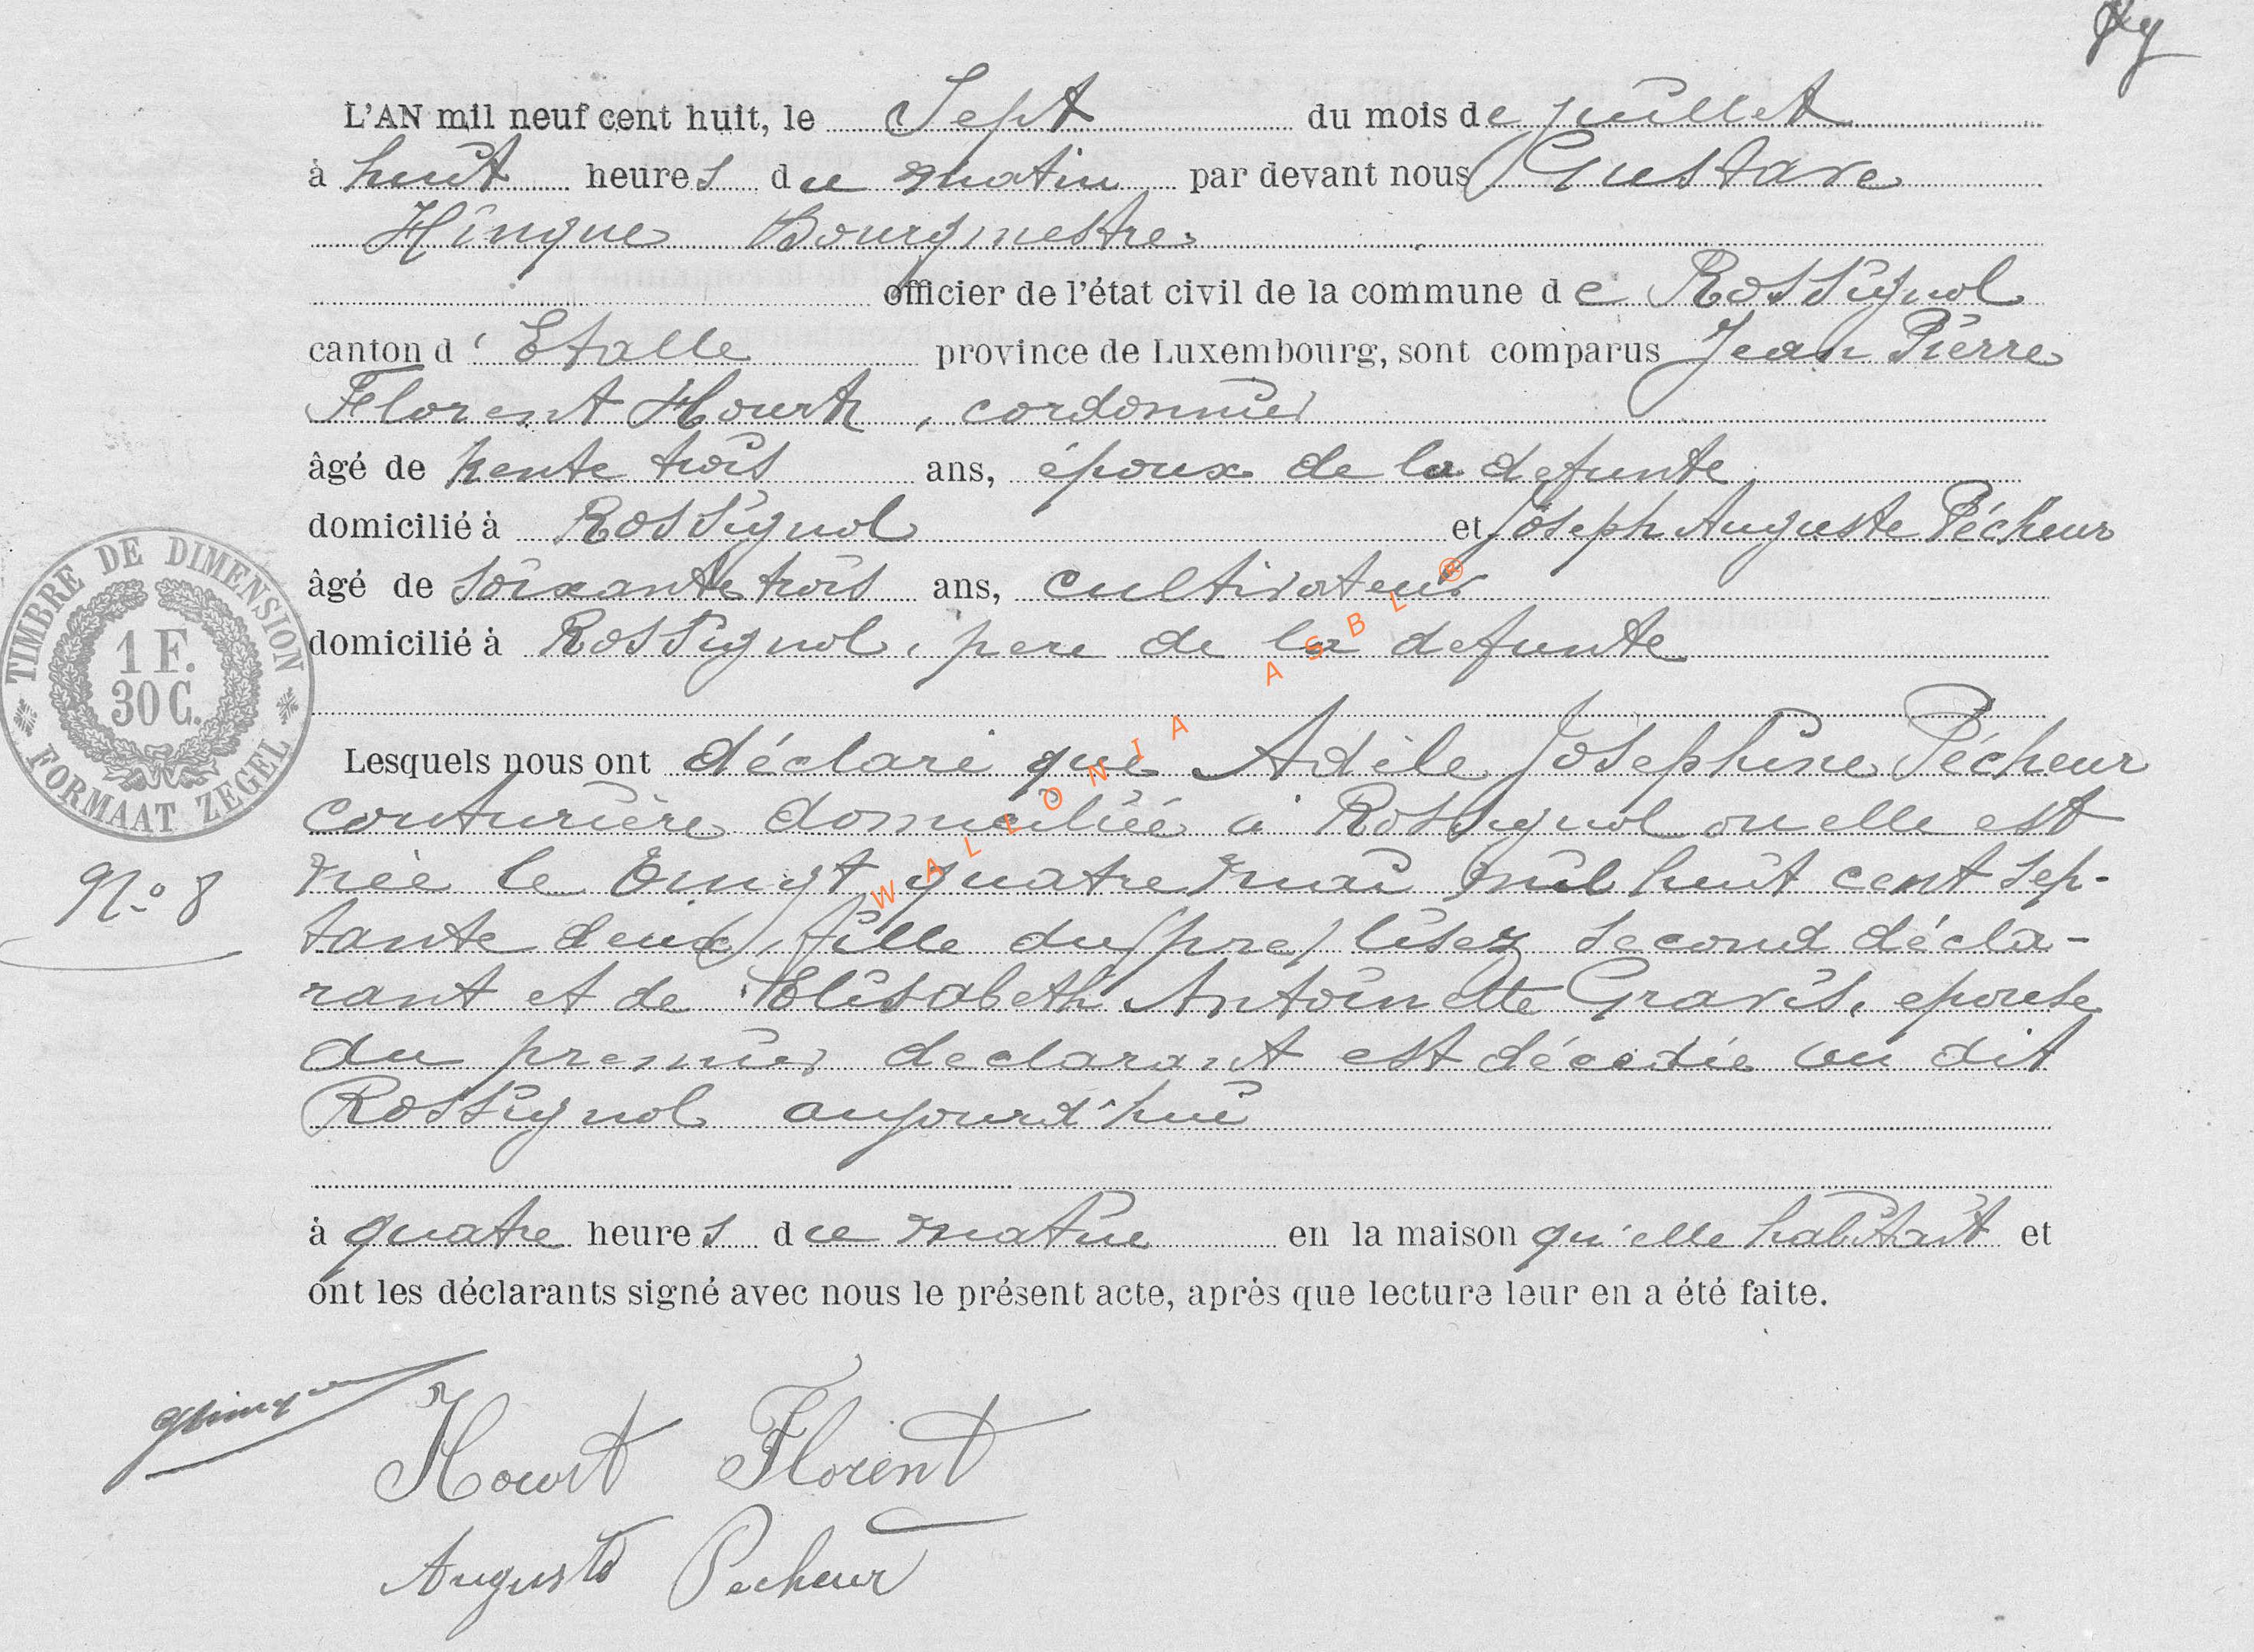 L'AN mil neuf cent huit, le Sept du mois de juillet
à huit heures du matin par devant nous Gustave
Hinque Bourgmestre
officier de l'état civil de la commune de Rossignol
canton d'Etalle province de Luxembourg, sont comparus Jean Pierre
Florent Hourt, cordonnier
âgé de trente trois ans, époux de la defunte
domicilié à Rossignol et Joseph Auguste Pécheur
âgé de soixante trois ans, cultivateur
domicilié à Rossignol, pere de la defunte
Lesquels nous ont déclaré que Adèle Joséphine Pécheur
couturière domiciliée à Rossignol ou elle est
née le vingt quatre mai mil huit cent sep-
tante deux, fille du (pre) lisez second décla-
rant et de Elisabeth Antoinette Gravis, epouse
du premier declarant est décédée au dit
Rossignol aujourd'hui
à quatre heures du matin en la maison qu'elle habitait et
ont les déclarants signé avec nous le présent acte, après que lecture leur en a été faite.
TIMBRE DE DIMENSION
1 F.
30 C.
FORMAAT ZEGEL
No 8
WALLONIA ASBL ®
Hinque
Hourt Florent
Auguste Pecheur